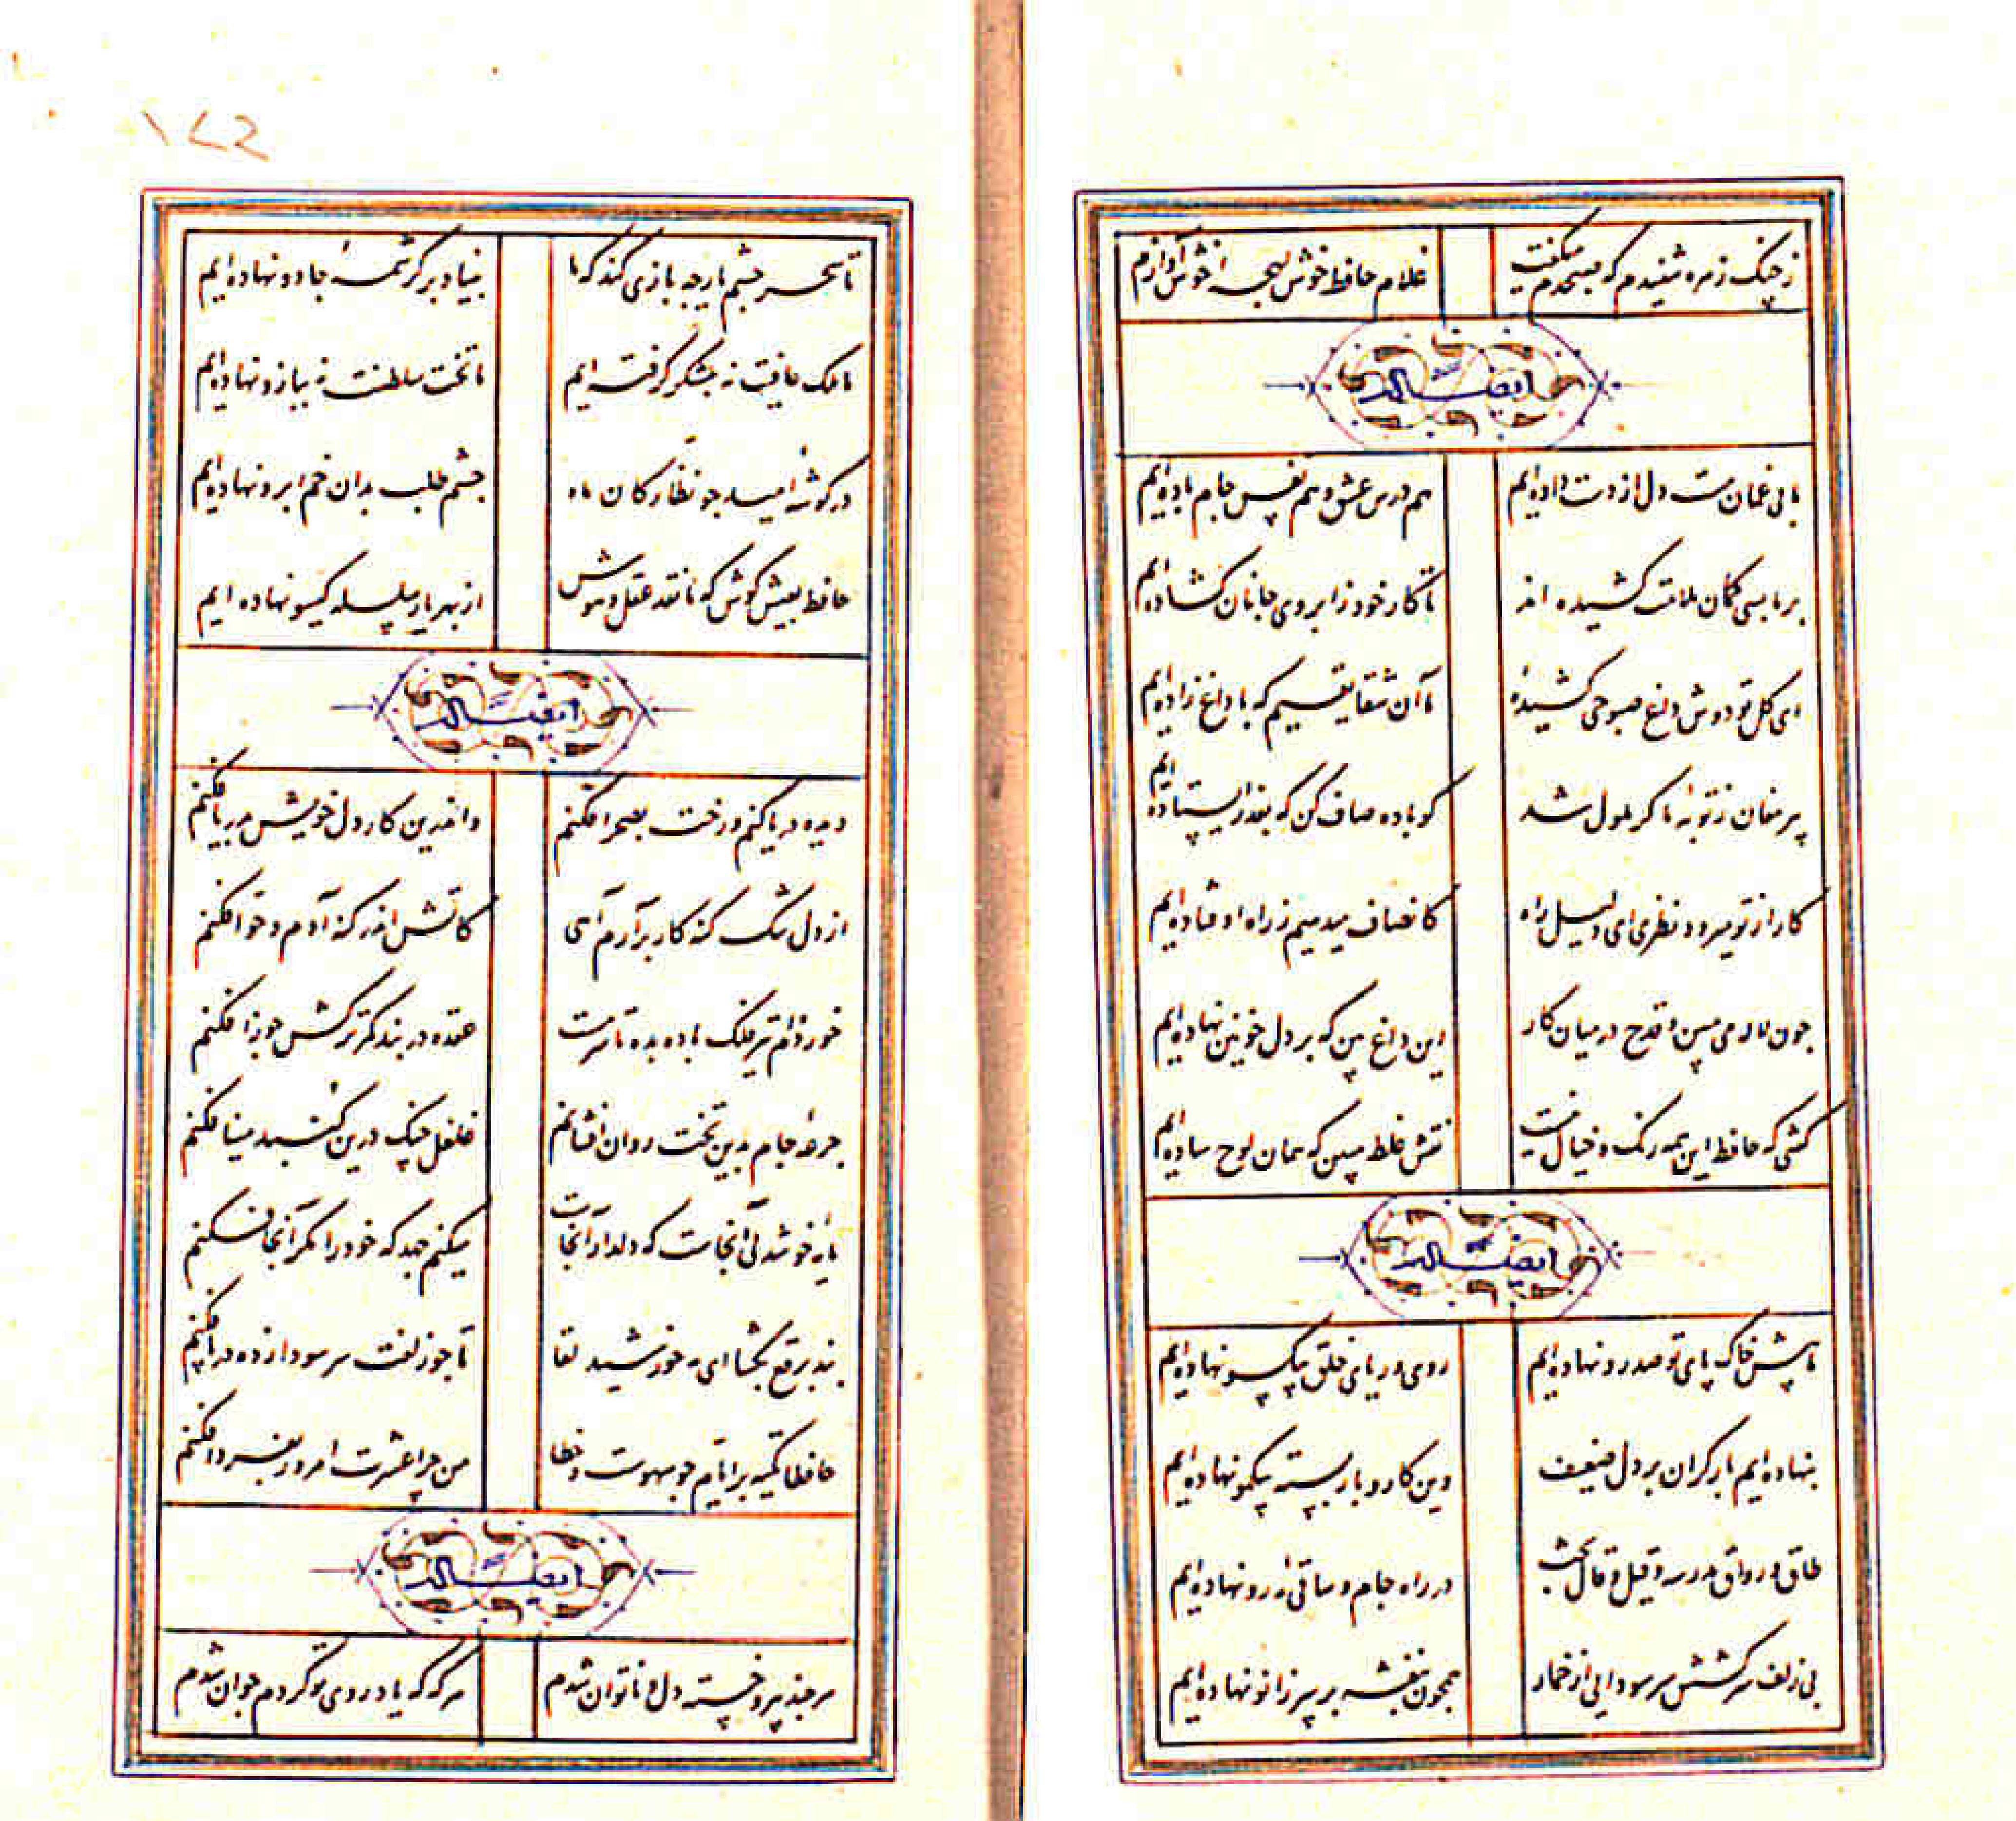 ز چنک زهره شنیدم که صبحدم میکفت
غلام حافظ خوش لهجه خوش آوازم
ایضاله
ما بی غمان مست دل از دست داده ایم
هم درس عشق و هم نفس جام باده ایم
بر ما بسی کمان ملامت کشیده اند
تا کار خود ز ابروی جانان کشاده ایم
ای کل تو دوش داغ صبوحی کشیدهٔ
ما آن شقایقیم که با داغ زاده ایم
پیر مغان ز توبهٔ ما کر ملول شد
کو باده صاف کن که بعذر ایستاده ایم
کار از تو میرود نظری ای دلیل راه
کانصاف میدهیم ز راه اوفتاده ایم
چون لاله می مبین و قدح در میان کار
این داغ بین که بر دل خونین نهاده ایم
کفتی که حافظ این همه رنک و خیال چیست
نقش غلط مبین که همان لوح ساده ایم
ایضاله
ما پیش خاک پای تو صد رو نهاده ایم
روی و ریای خلق بیکسو نهاده ایم
بنهاده ایم بار کران بر دل ضعیف
وین کار و بار بسته بیکمو نهاده ایم
طاق و رواق مدرسه و قیل و قال بحث
در راه جام و ساقی مه رو نهاده ایم
بی زلف سرکشش سر سودایی از خمار
همچون بنفشه بر سر زانو نهاده ایم
۱۷۲
تا سحر چشم یار چه بازی کند که ما
بنیاد بر کرشمهٔ جادو نهاده ایم
ما ملک عافیت نه بلشکر کرفته ایم
ما تخت سلطنت نه ببازو نهاده ایم
در کوشهٔ امید چو نظارکان ماه
چشم طلب بدان خم ابرو نهاده ایم
حافظ بعیش کوش که ما نقد عقل و هوش
از بهر یار سلسله کیسو نهاده ایم
ایضاله
دیده دریا کنم و رخت بصحرا فکنم
واندرین کار دل خویش بدریا فکنم
از دل تنک کنه کار برآرم آهی
کاتش اندر کنه آدم و حوا فکنم
خورده ام تیر فلک باده بده تا سرمست
عقده در بند کمر ترکش جوزا فکنم
جرعهٔ جام بدین تخت روان افشانم
غلغل چنک درین کنبد مینا فکنم
مایهٔ خوشدلی آنجاست که دلدار آنجاست
میکنم جهد که خود را مکر آنجا فکنم
بند برقع بکشا ای مه خورشید لقا
تا چو زلفت سر سودا زده در پا فکنم
حافظا تکیه بر ایام چو سهوست و خطا
من چرا عشرت امروز بفردا فکنم
ایضاله
هر چند پیر و خسته دل و ناتوان شدم
هر که که یاد روی تو کردم جوان شدم